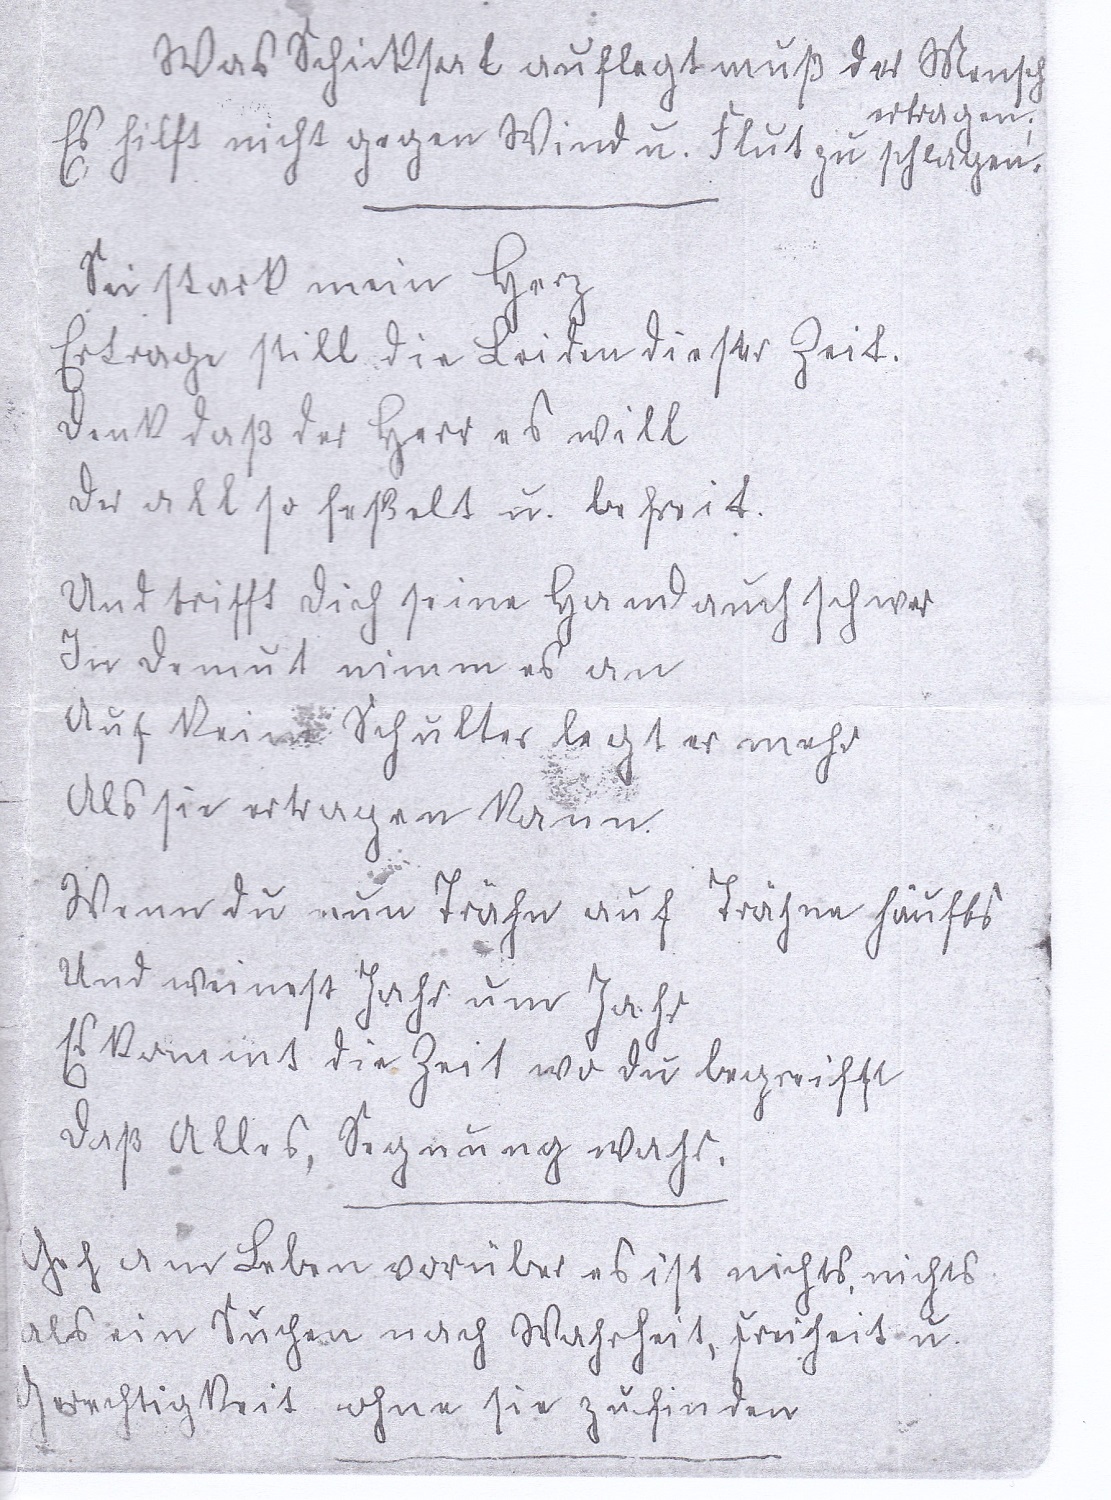 Was Schicksal auflegt muß der Mensch
ertragen;
Es hilft nicht gegen Wind u. Flut zu schlagen.
Sei stark mein Herz
Ertrage still die Leiden dieser Zeit.
Denk daß der Herr es will
Der all so feßelt u. befreit.
Und trifft Dich seine Hand auch schwer
In Demut nimm es an
Auf keine Schulter legt er mehr
Als sie ertragen kann.
Wenn du nun Trähn auf Trähne häufst
Und weinest Jahr um Jahr
Es kommt die Zeit wo du begreifst
Daß Alles, Segnung wahr.
Geh am Leben vorüber es ist nichts, nichts
als ein Suchen nach Wahrheit, Freiheit u.
Gerechtigkeit ohne sie zu finden